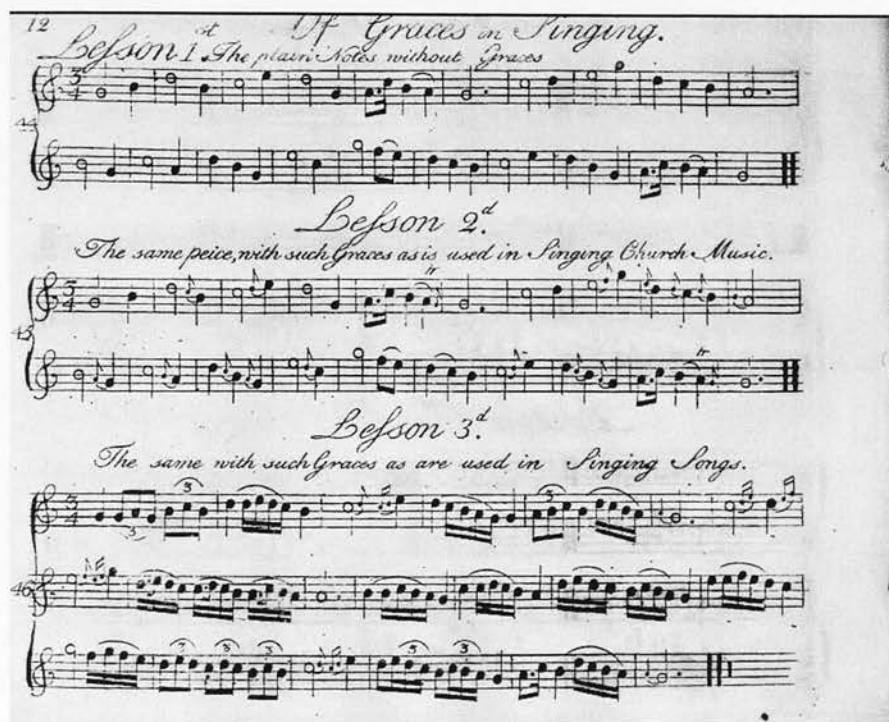 12
Of Graces in Singing.
Lesson 1st. The plain Notes without Graces
3
4
44
Lesson 2d.
The same peice, with such Graces as is used in Singing Church Music.
3
4
tr
45
tr
Lesson 3d.
The same with such Graces as are used in Singing Songs.
3
4
3
3
3
46
3
3
3
3
3